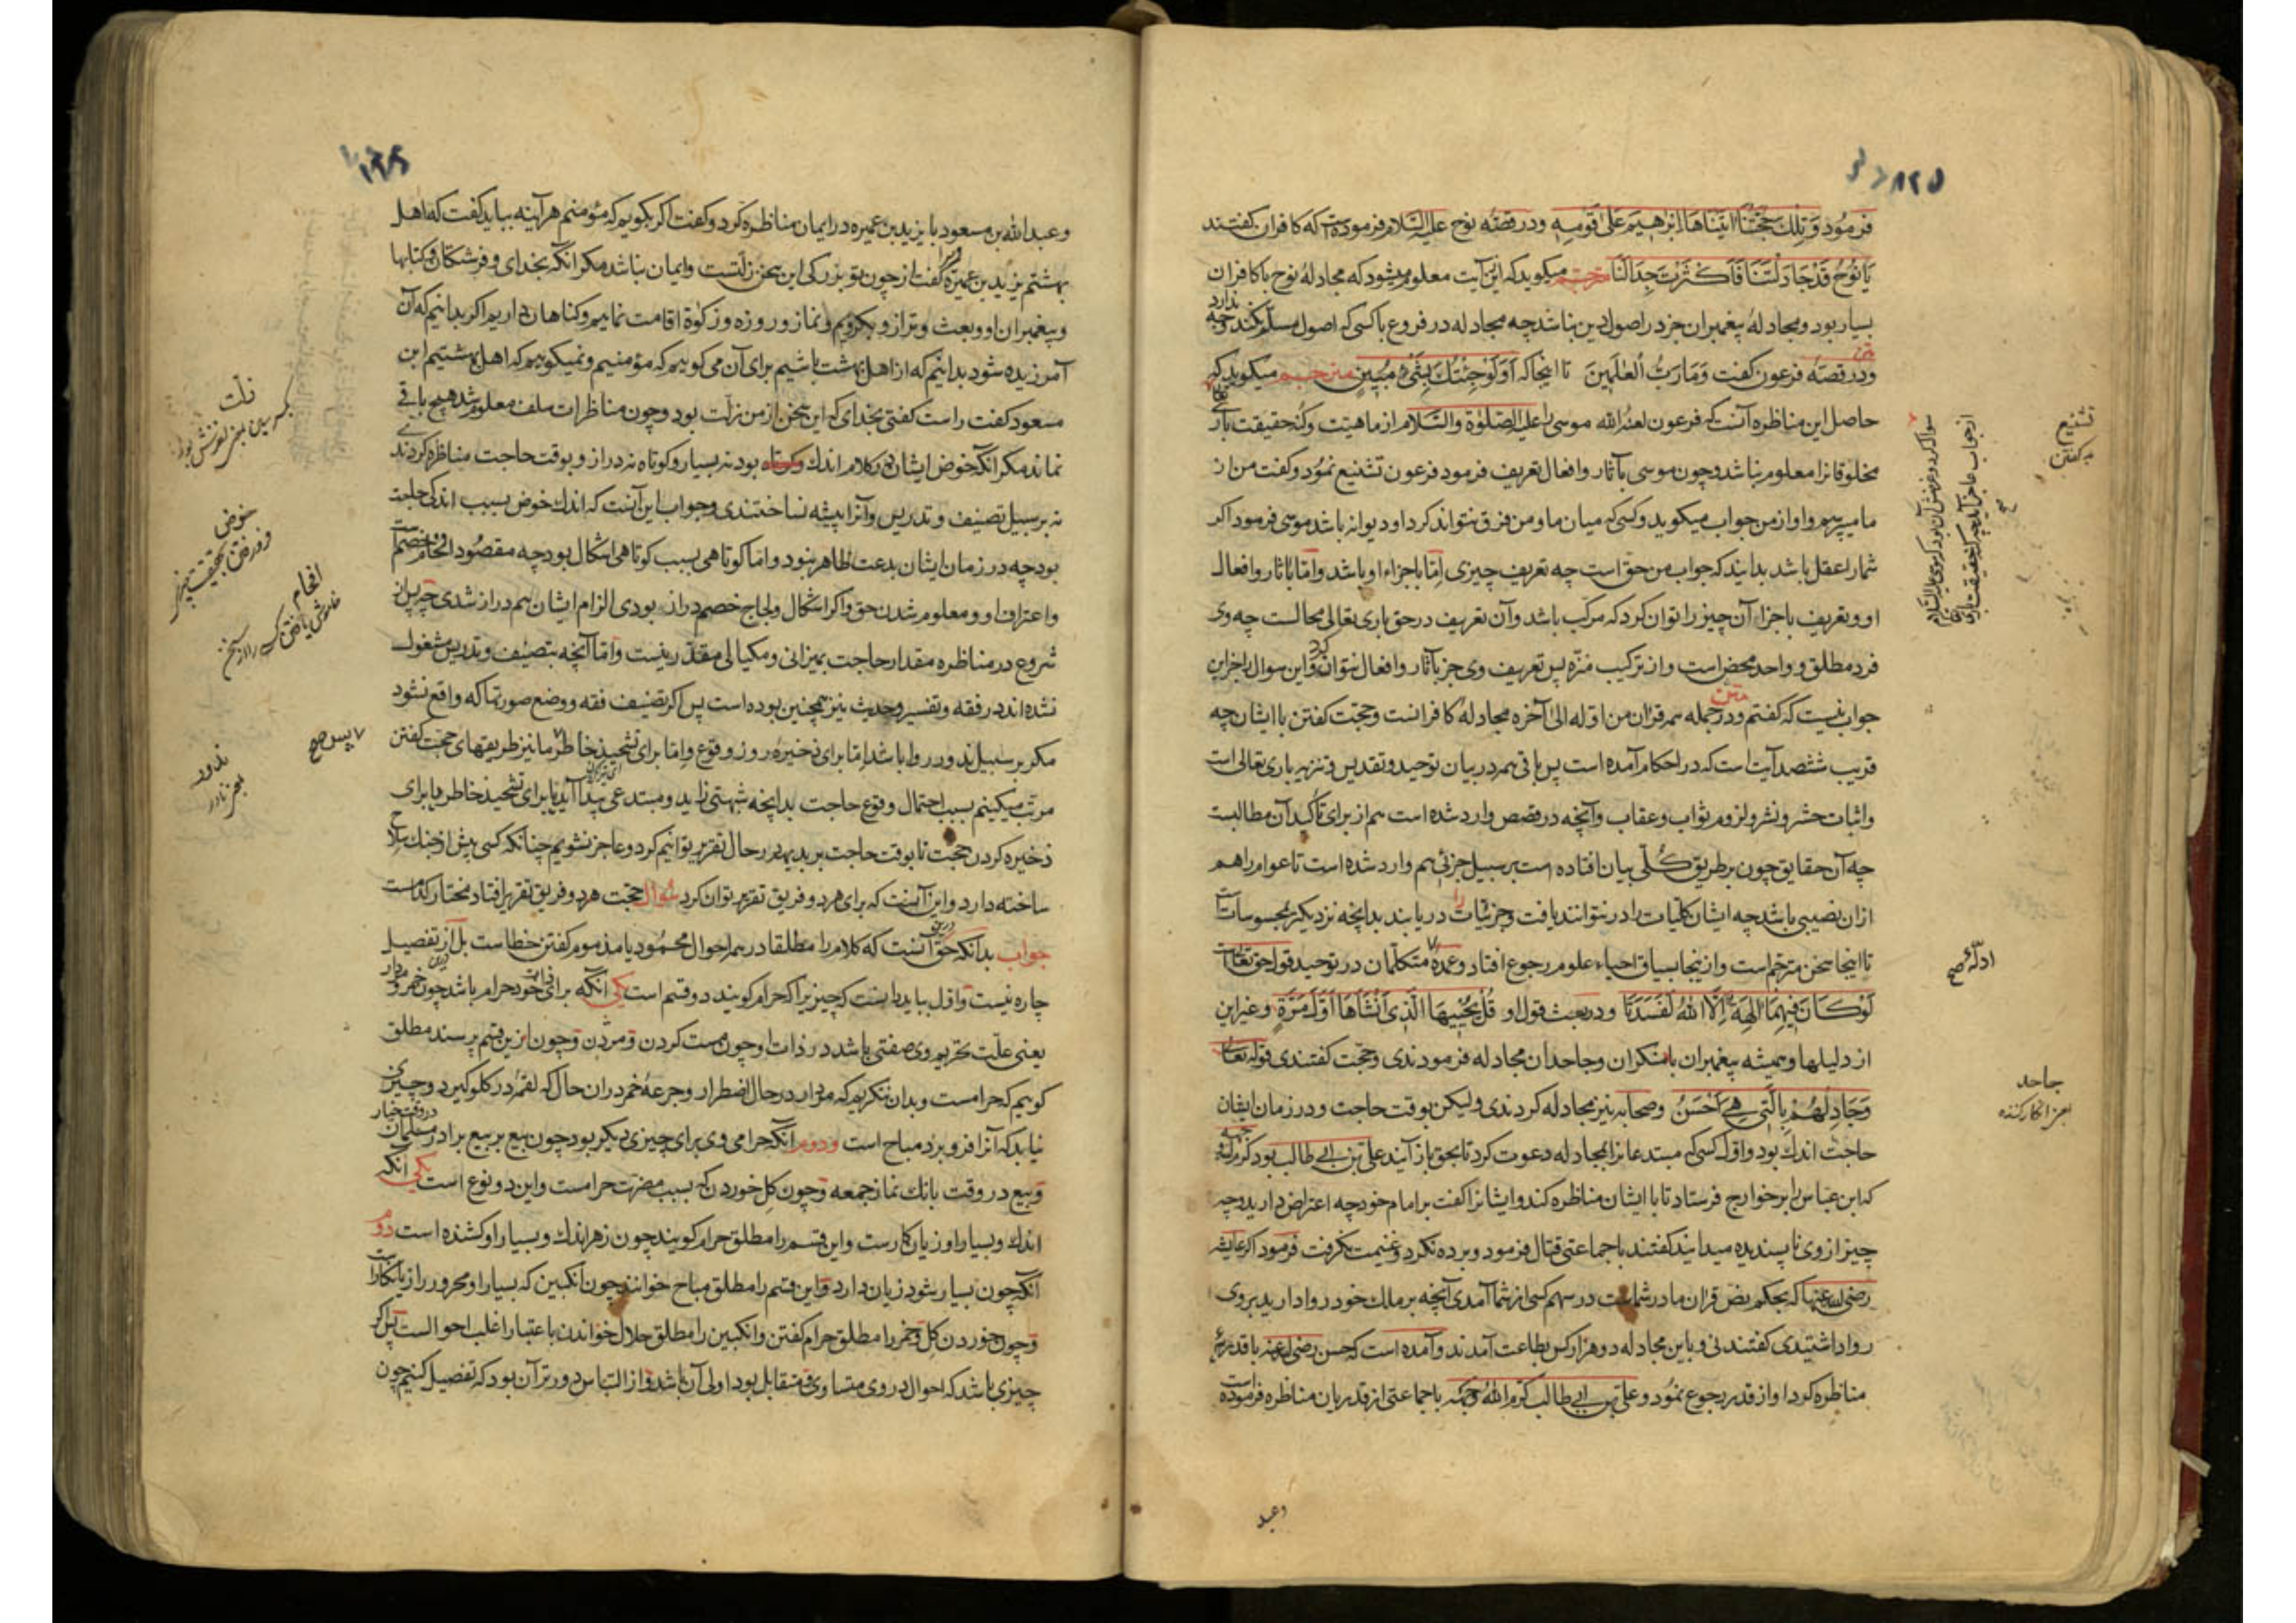 ۱۲۵
فرمود وَتِلْكَ حُجَّتُنَا آتَيْنَاهَا اِبْرَاهِيمَ عَلَىٰ قَوْمِهِ ودر قصّه نوح عليه السّلام فرموده است كه كافران گفتند
يَا نُوحُ قَدْ جَادَلْتَنَا فَاَكْثَرْتَ جِدَالَنَا مترجم ميگويد كه ازين آيت معلوم ميشود كه مجادلۀ نوح با كافران
بسيار بود ومجادلۀ پيغمبران جز در اصول دين نباشد چه مجادله در فروع با كسى كه اصول مسلّم نكند وجه ندارد
متن
ودر قصّه فرعون گفت وَمَا رَبُّ الْعَالَمِينَ تا اينجا كه اَوَلَوْ جِئْتُكَ بِشَىْءٍ مُبِينٍ مترجم ميگويد كه
حاصل اين مناظره آنست كه فرعون لعنه الله موسى را عليه الصّلوة والسّلام از ماهيّت وكنه حقيقت بارى
مخلوقانرا معلوم نباشد وچون موسى بآثار وافعال تعريف فرمود فرعون تشنيع نمود وگفت من از
ما ميپرسم واو از من جواب ميگويد وكسى كه ميان ما ومن فرق نتواند كرد او ديوانه باشد موسى فرمود اگر
شما را عقل باشد بدانيد كه جواب من حق است چه تعريف چيزى امّا باجزاء او باشد وامّا بآثار وافعال
او وتعريف باجزاء آن چيز را توان كرد كه مركّب باشد وآن تعريف در حق بارى تعالى محالست چه وى
فرد مطلق وواحد محض است واز تركيب منزّه پس تعريف وى جز بآثار وافعال نتوان كرد واين سوال را جز اين
جواب نيست كه گفتم متن ودر جمله همه قرآن من اوّله الى آخره مجادلۀ كافرانست وحجّت گفتن با ايشان چه
قريب ششصد آيت است كه در احكام آمده است پس باقى همه در بيان توحيد وتقديس وتنزيه بارى تعالى است
واثبات حشر ونشر ولزوم ثواب وعقاب وآنچه در قصص وارد شده است هم از براى تأكيد آن مطالبست
چه آن حقايق چون بر طريق كُلّى بيان افتاده است بر سبيل جزئى هم وارد شده است تا عوام را هم
ازان نصيبى باشد چه ايشان كلّيات را در نتوانند يافت وجزئيات را دريابند بدانچه نزديكتر بمحسوسات است
تا اينجا سخن مترجم است وازينجا بسياق احياء علوم رجوع افتاد وعمدۀ متكلّمان در توحيد قول حق تعالى است
لَوْ كَانَ فِيهِمَا آلِهَةٌ اِلَّا اللهُ لَفَسَدَتَا ودر بعث قول او قُلْ يُحْيِيهَا الَّذِى اَنْشَاَهَا اَوَّلَ مَرَّةٍ وغير اين
از دليلها وهميشه پيغمبران با منكران وجاحدان مجادله فرمودندى وحجّت گفتندى قوله تعالى
وَجَادِلْهُمْ بِالَّتِى هِىَ اَحْسَنُ وصحابه نيز مجادله كردندى وليكن بوقت حاجت ودر زمان ايشان
حاجت اندك بود واوّل كسى كه مبتدعانرا بمجادله دعوت كرد تا بحق باز آيند على بن ابى طالب بود كرم الله وجهه
كه ابن عبّاس را بر خوارج فرستاد تا با ايشان مناظره كند وايشانرا گفت بر امام خود چه اعتراض داريد وچه
چيز از وى ناپسنديده ميدانيد گفتند با جماعتى قتال فرمود وبرده نكرد وغنيمت نگرفت فرمود اگر عايشه
رضى الله عنها كه بحكم نص قرآن مادر شماست در سهم كسى از شما آمدى آنچه بر ملك خود روا داريد بر وى
روا داشتيدى گفتند نى وباين مجادله دو هزار كس بطاعت آمدند وآمده است كه حسن رضى الله عنه با قدريى
مناظره كرد او از قدر رجوع نمود وعلى بن ابى طالب كرم الله وجهه با جماعتى از قدريان مناظره فرموده است
وعبد
تشنيع
بد گفتن
ادلّه صح
جاحد
بمعنى انكار كننده
وعبدالله بن مسعود با يزيد بن عميره در ايمان مناظره كرد وگفت اگر بگويم كه مؤمنم هر آينه ببايد گفت كه اهل
بهشتم يزيد بن عميره گفت از چون تو بزرگى اين سخن زلّتست وايمان نباشد مگر آنكه بخداى وفرشتگان وكتابها
وپيغمبران او وبعث وترازو بگرويم ونماز وروزه وزكوة اقامت نماييم وگناهان داريم اگر بدانيم كه آن
آمرزيده شود بدانيم كه از اهل بهشت باشيم براى آن مى گوييم كه مؤمنيم ونميگوييم كه اهل بهشتيم ابن
مسعود گفت راست گفتى بخداى كه اين سخن از من زلّت بود وچون مناظرات سلف معلوم شد هيچ باقى
نماند مگر آنكه خوض ايشان در كلام اندك بود نه بسيار وكوتاه نه دراز وبوقت حاجت مناظره كردندى
نه بر سبيل تصنيف وتدريس وآنرا پيشه نساختندى وجواب اين آنست كه اندك خوض بسبب اندكى حاجت
بود چه در زمان ايشان بدعت ظاهر نبود وامّا كوتاهى بسبب كوتاهى اشكال بود چه مقصود افحام خصم است
واعتراف او ومعلوم شدن حق واگر اشكال ولجاج خصم دراز بودى الزام ايشان هم دراز شدى چه پس از
شروع در مناظره مقدار حاجت بميزانى ومكيالى مقدّر نيست وامّا آنچه بتصنيف وتدريس مشغول
نشده اند در فقه وتفسير وحديث نيز همچنين بوده است پس اگر تصنيف فقه ووضع صورتها كه واقع نشود
مگر بر سبيل ندور روا باشد امّا براى ذخيرۀ روز وقوع وامّا براى تشحيذ خاطر ما نيز طريقهاى حجّت گفتن
مرتّب ميكنيم بسبب احتمال وقوع حاجت بدانچه شبهتى زايد ومبتدعى پيدا آيد يا براى تشحيذ خاطر يا براى
ذخيره كردن حجّت تا بوقت حاجت بر بديهه در حال تقرير توانيم كرد وعاجز نشويم چنانكه كسى پيش از جنگ سلاح
ساخته دارد واين آنست كه براى هر دو فريق تقرير توان كرد سُوال حجّت هر دو فريق تقرير افتاد مختار كدامست
جواب بدانكه حق آنست كه كلام را مطلقا در همه احوال محمود يا مذموم گفتن خطاست بل از تفصيل
چاره نيست واوّل ببايد دانست كه چيزيرا كه حرام گويند دو قسم است يكى آنكه براى ذات خود حرام باشد چون خمر ومردار
يعنى علّت تحريم وى صفتى باشد در ذات او چون مست كردن ومردن وچون ازين قسم پرسند مطلق
گوييم كه حرامست وبدان ننگريم كه مردار در حال اضطرار وجرعۀ خمر دران حال كه لقمه در گلو گيرد وچيزى
نيابد كه آنرا فرو برد مباح است ودوم آنكه حرامى وى براى چيزى ديگر بود چون بيع بر بيع برادر مسلمان در وقت خيار
وبيع در وقت بانگ نماز جمعه وچون گِل خوردن كه بسبب مضرت حرامست واين دو نوع است يكى آنكه
اندك وبسيار او زيان كارست واين قسم را مطلق حرام گويند چون زهر اندك وبسيار او كشنده است دوم
آنكه چون بسيار شود زيان دارد واين قسم را مطلق مباح خوانند چون انگبين كه بسيار او محرور را زيانكارست
وچون خوردن گِل وخمر را مطلق حرام گفتن وانگبين را مطلق حلال خواندن باعتبار اغلب احوالست پس اگر
چيزى باشد كه احوال در وى متساوى ومتقابل بود اولى آن باشد واز التباس دورتر آن بود كه تفصيل كنيم چون
زلّت
خوض
افحام
پس صح
ندور